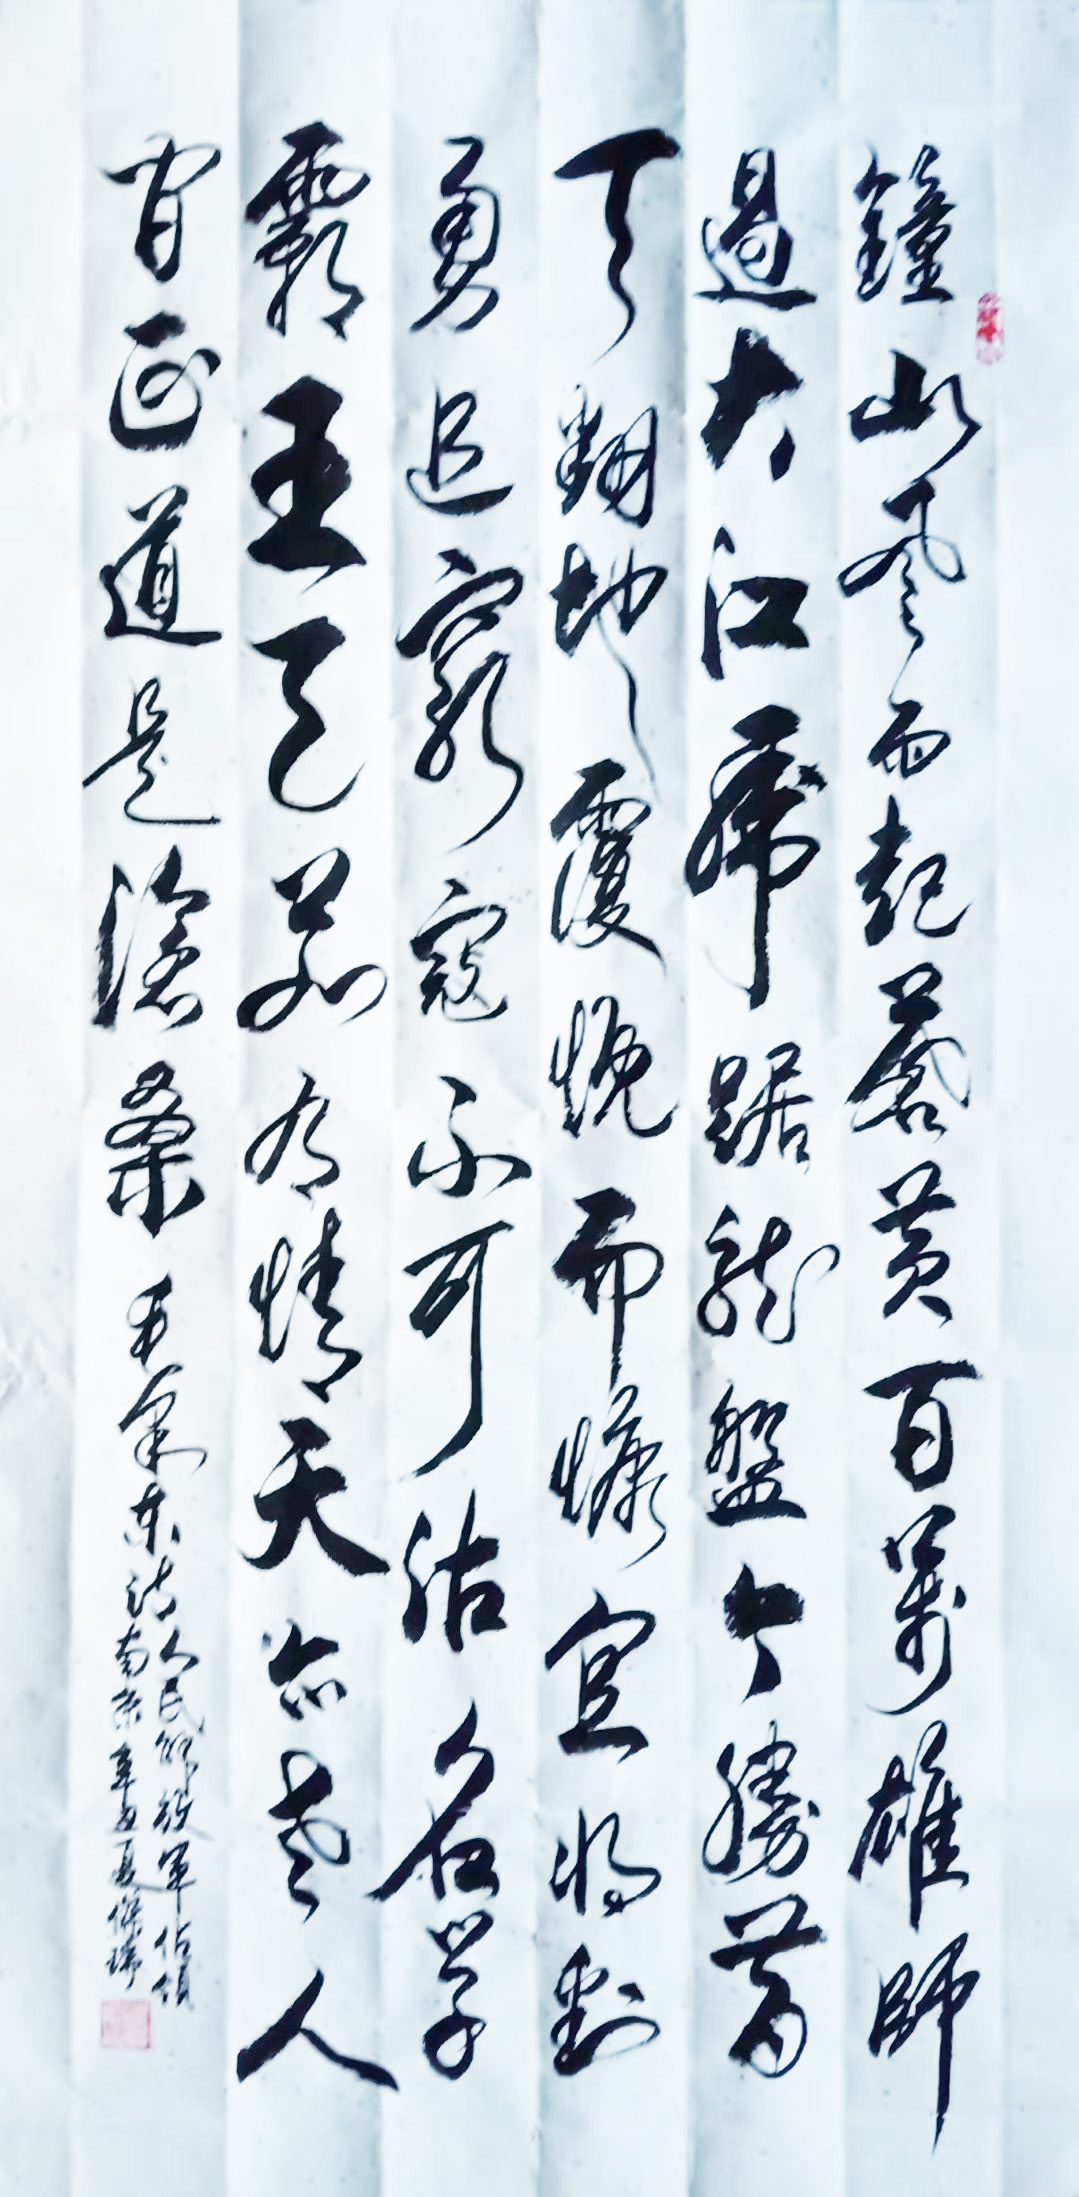 鐘山風雨起蒼黃百萬雄師
過大江虎踞龍盤今勝昔
天翻地覆慨而慷宜將剩
勇追窮寇不可沽名學
霸王天若有情天亦老人
間正道是滄桑 毛澤東詩
人民解放軍佔領
南京 辛丑夏 傑瑞